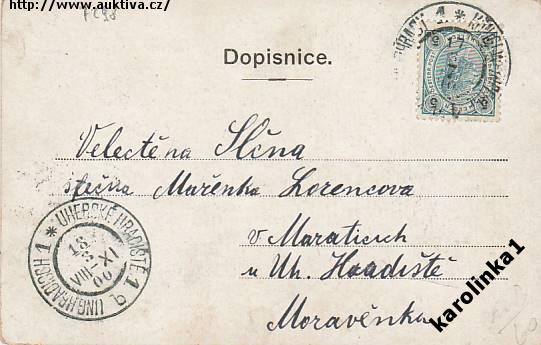 http://www.auktiva.cz/
Dopisnice.
Velectěna Slčna
slečna Mařenka Lorencova
v Maraticích
u Uh. Hradiště
Moravěnka
UHERSKÉ HRADIŠTĚ 1 a
UNG. HRADISCH 1
18
3
VIII-XI
00
karolinka1